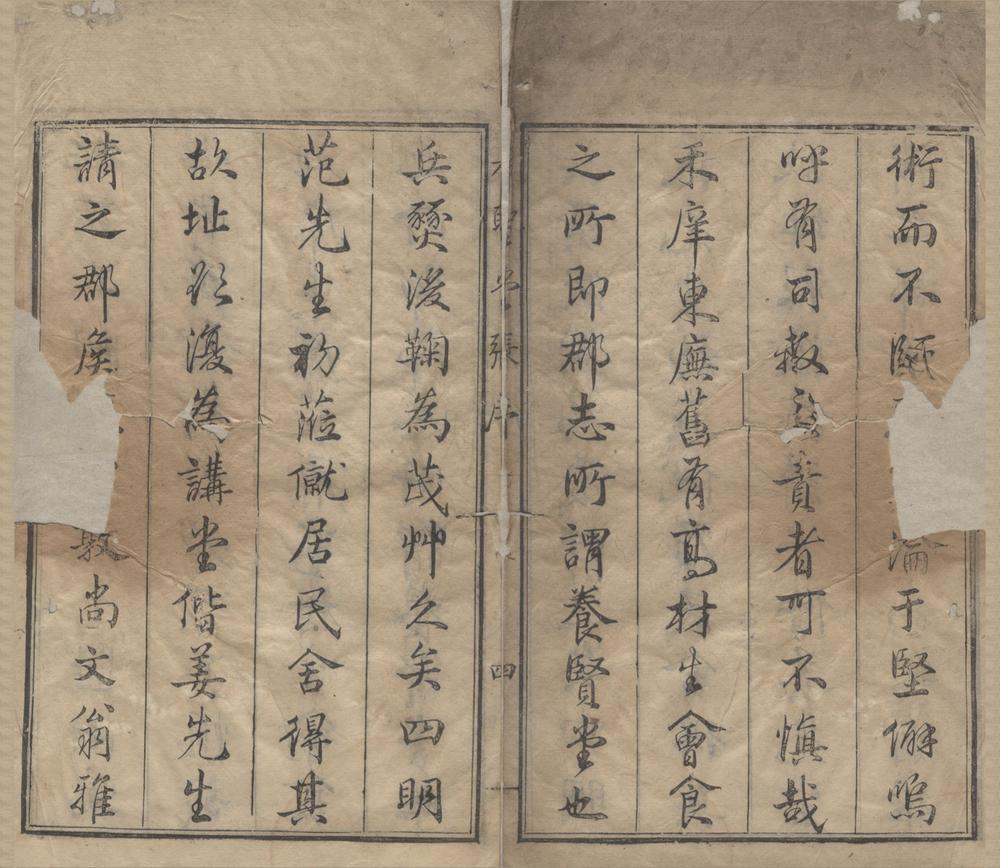 術而不陋淪于堅僻嗚
呼有司教責者可不慎哉
禾庠東廡舊有高材生會食
之所即郡志所謂養賢堂也
堂張序 四
兵燹後鞠為茂艸久矣四明
范先生初蒞僦居民舍得其
故址欲復為講堂偕姜先生
請之郡侯尚文翁雅